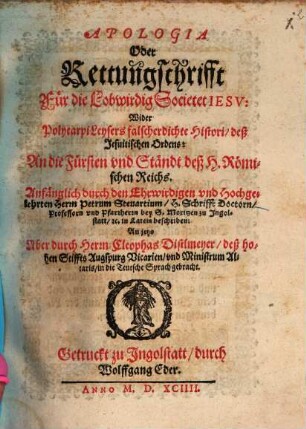 APOLOGIA
Oder
Rettungschrifft
Für die Lobwirdig Societet IESV:
Wider
Polycarpi Leysers falscherdichte Histori/ deß
Jesuitischen Ordens:
An die Fürsten vnd Ständt deß H. Römi-
schen Reichs.
Anfänglich durch den Ehrwirdigen vnd Hochge-
lehrten Herrn Petrum Steuartium/ H. Schrifft Doctorn/
Professorn vnd Pfarrherrn bey S. Moritzen zu Ingol-
statt/ ꝛc. in Latein beschriben:
An jetzo
Aber durch Herrn Cleophas Distlmeyer/ deß ho-
hen Stiffts Augspurg Vicarien/ vnd Ministrum Al-
taris/ in die Teutsche Sprach gebracht.
Getruckt zu Ingolstatt/ durch
Wolffgang Eder.
ANNO M. D. XCIIII.